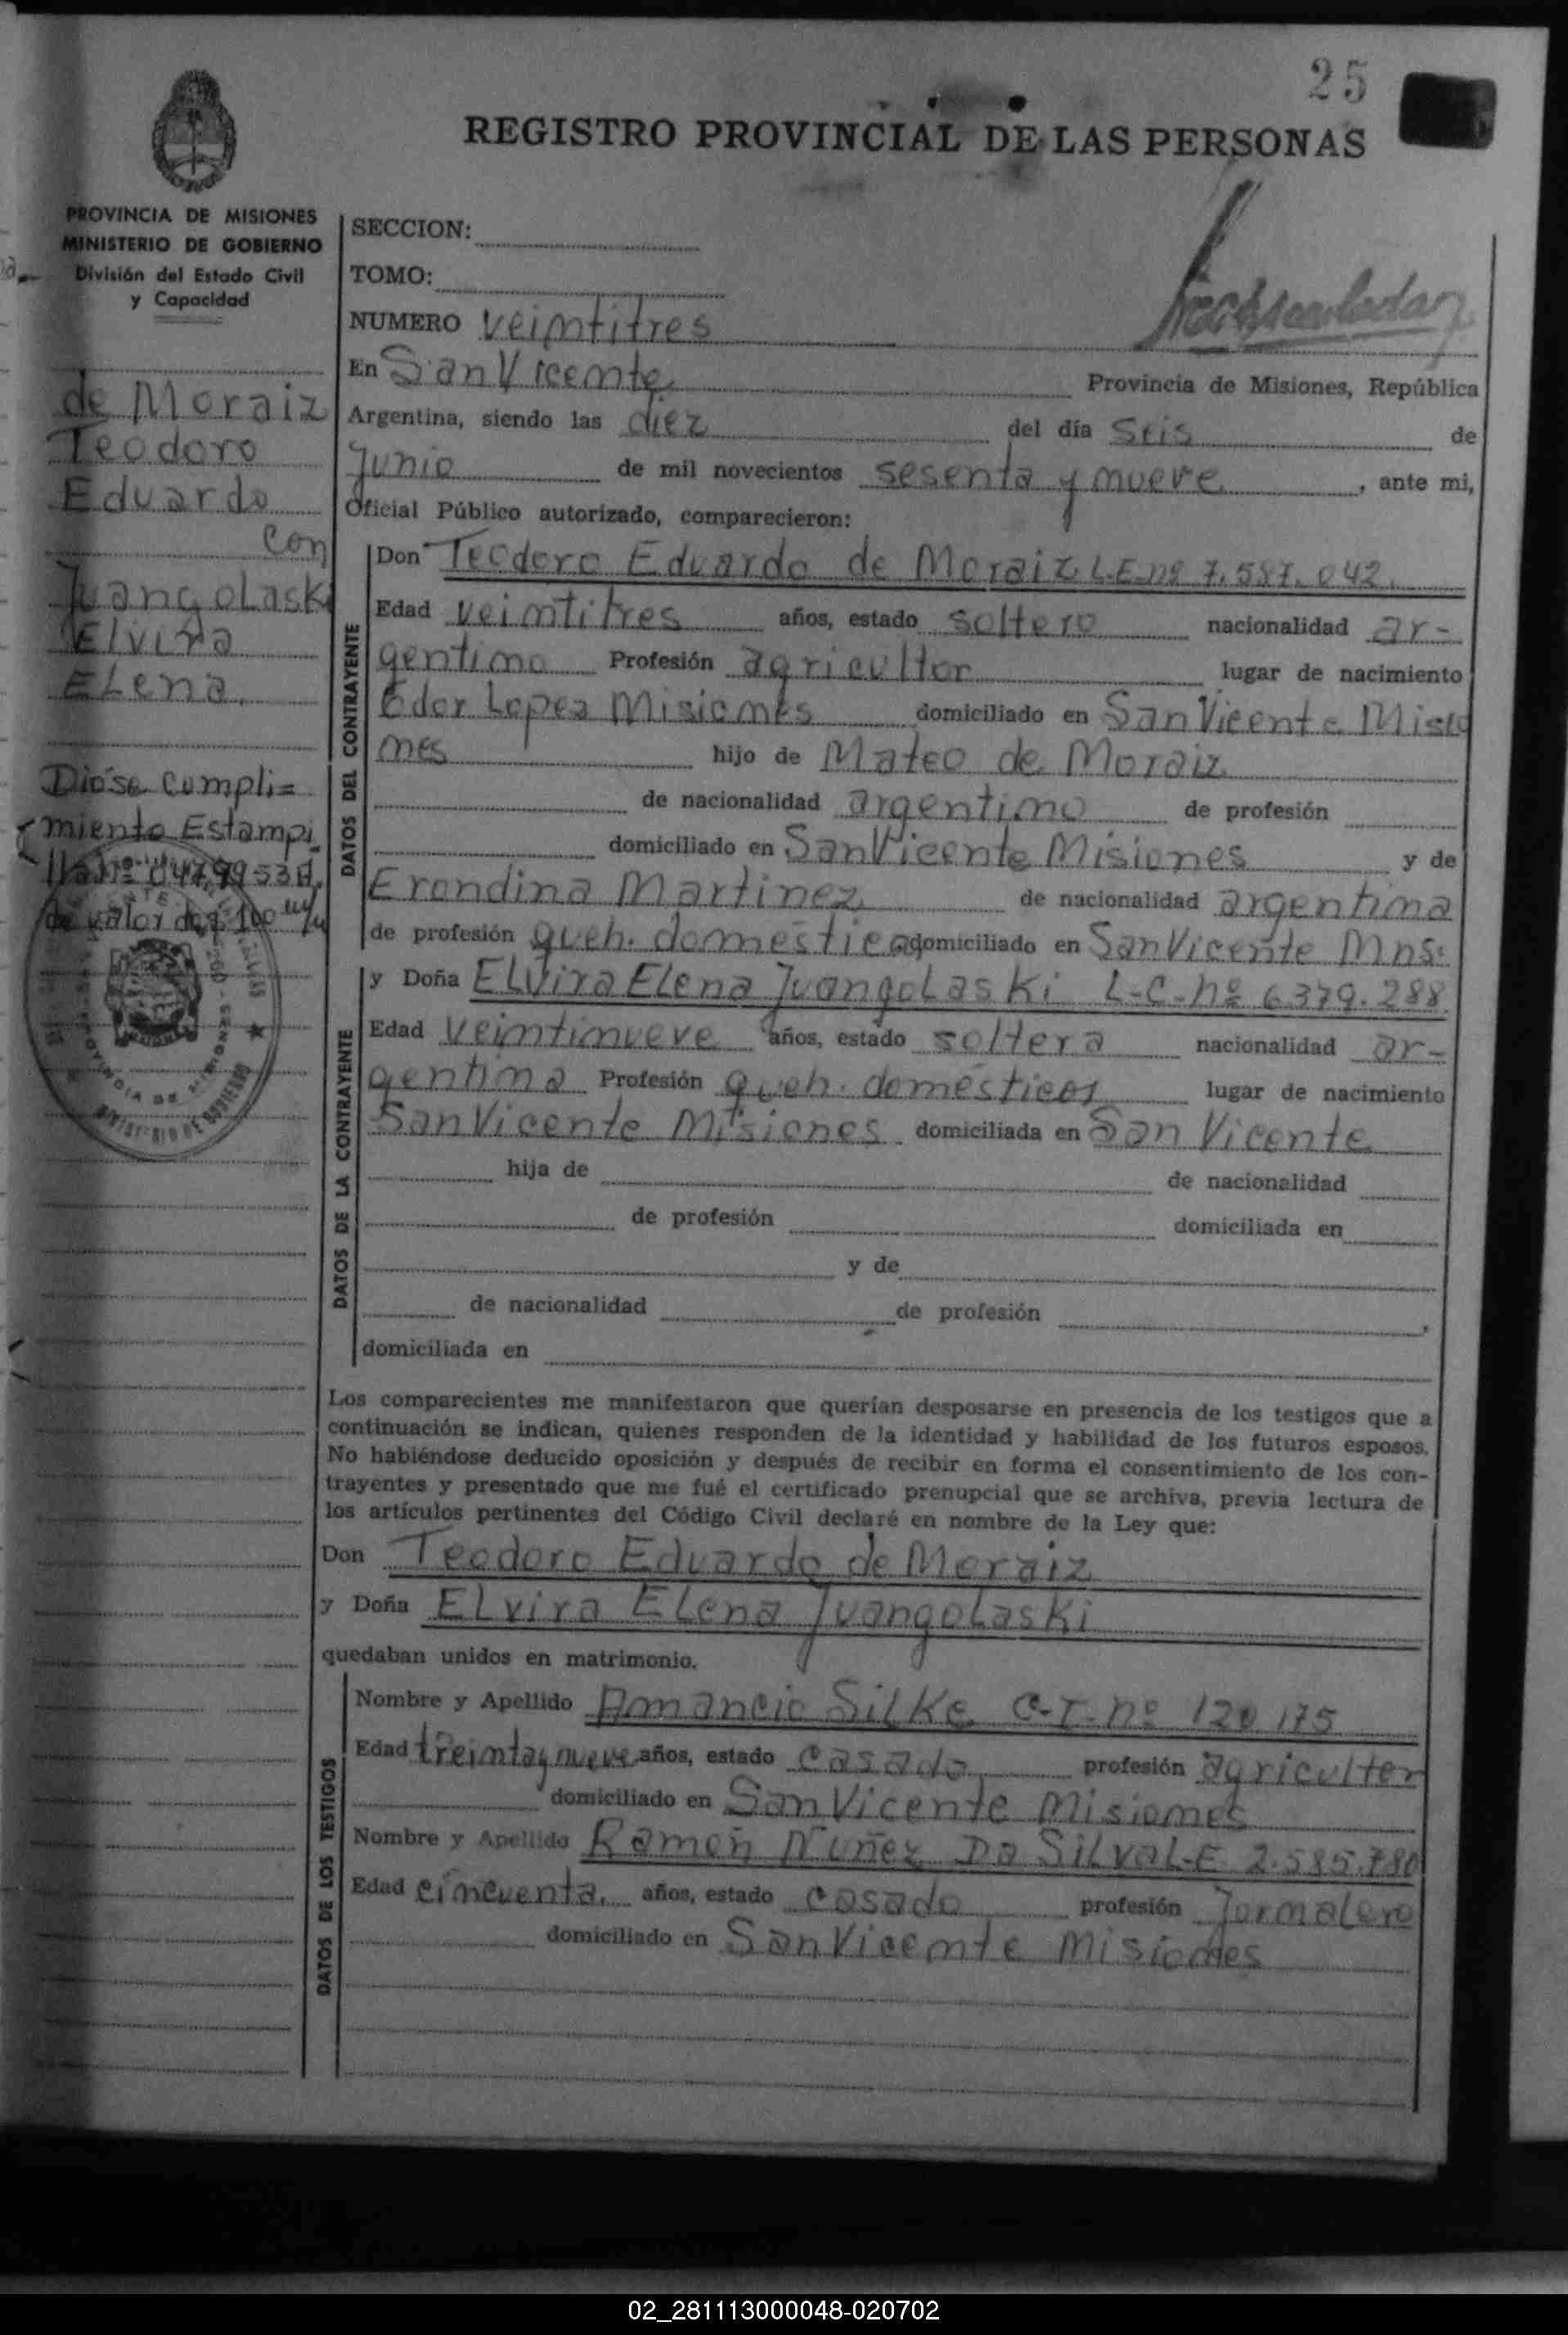 25
REGISTRO PROVINCIAL DE LAS PERSONAS
PROVINCIA DE MISIONES
MINISTERIO DE GOBIERNO
División del Estado Civil
y Capacidad
de Moraiz
Teodoro
Eduardo
con
Juangolaski
Elvira
Elena
Diose cumpli=
miento Estampi
de valor de $ 100 m/n
SECCION:
TOMO:
NUMERO veintitres
En San Vicente Provincia de Misiones, República
Argentina, siendo las diez del día seis de
Junio de mil novecientos sesenta y nueve, ante mi,
Oficial Público autorizado, comparecieron:
DATOS DEL CONTRAYENTE
Don Teodoro Eduardo de Moraiz L.E. nº 7.587.042.
Edad veintitres años, estado soltero nacionalidad ar-
gentino Profesión agricultor lugar de nacimiento
Lopez Misiones domiciliado en San Vicente Misio
nes hijo de Mateo de Moraiz
de nacionalidad argentino de profesión
domiciliado en San Vicente Misiones y de
Erondina Martinez de nacionalidad argentina
de profesión queh. domestico domiciliado en San Vicente Mns.
DATOS DE LA CONTRAYENTE
y Doña Elvira Elena Juangolaski L-C-nº 6379.288
Edad veintinueve años, estado soltera nacionalidad ar-
gentina Profesión queh. domésticos lugar de nacimiento
San Vicente Misiones domiciliada en San Vicente
hija de de nacionalidad
de profesión domiciliada en
y de
de nacionalidad de profesión ,
domiciliada en
Los comparecientes me manifestaron que querían desposarse en presencia de los testigos que a
continuación se indican, quienes responden de la identidad y habilidad de los futuros esposos.
No habiéndose deducido oposición y después de recibir en forma el consentimiento de los con-
trayentes y presentado que me fué el certificado prenupcial que se archiva, previa lectura de
los artículos pertinentes del Código Civil declaré en nombre de la Ley que:
Don Teodoro Eduardo de Moraiz
y Doña Elvira Elena Juangolaski
quedaban unidos en matrimonio.
DATOS DE LOS TESTIGOS
Nombre y Apellido Amancio Silke C-I-nº 120 175
Edad treinta y nueve años, estado casado profesión agricultor
domiciliado en San Vicente Misiones
Nombre y Apellido Ramon Nuñez Da Silva L-E 2.585.780
Edad cincuenta años, estado casado profesión Jornalero
domiciliado en San Vicente Misiones
02_281113000048-020702